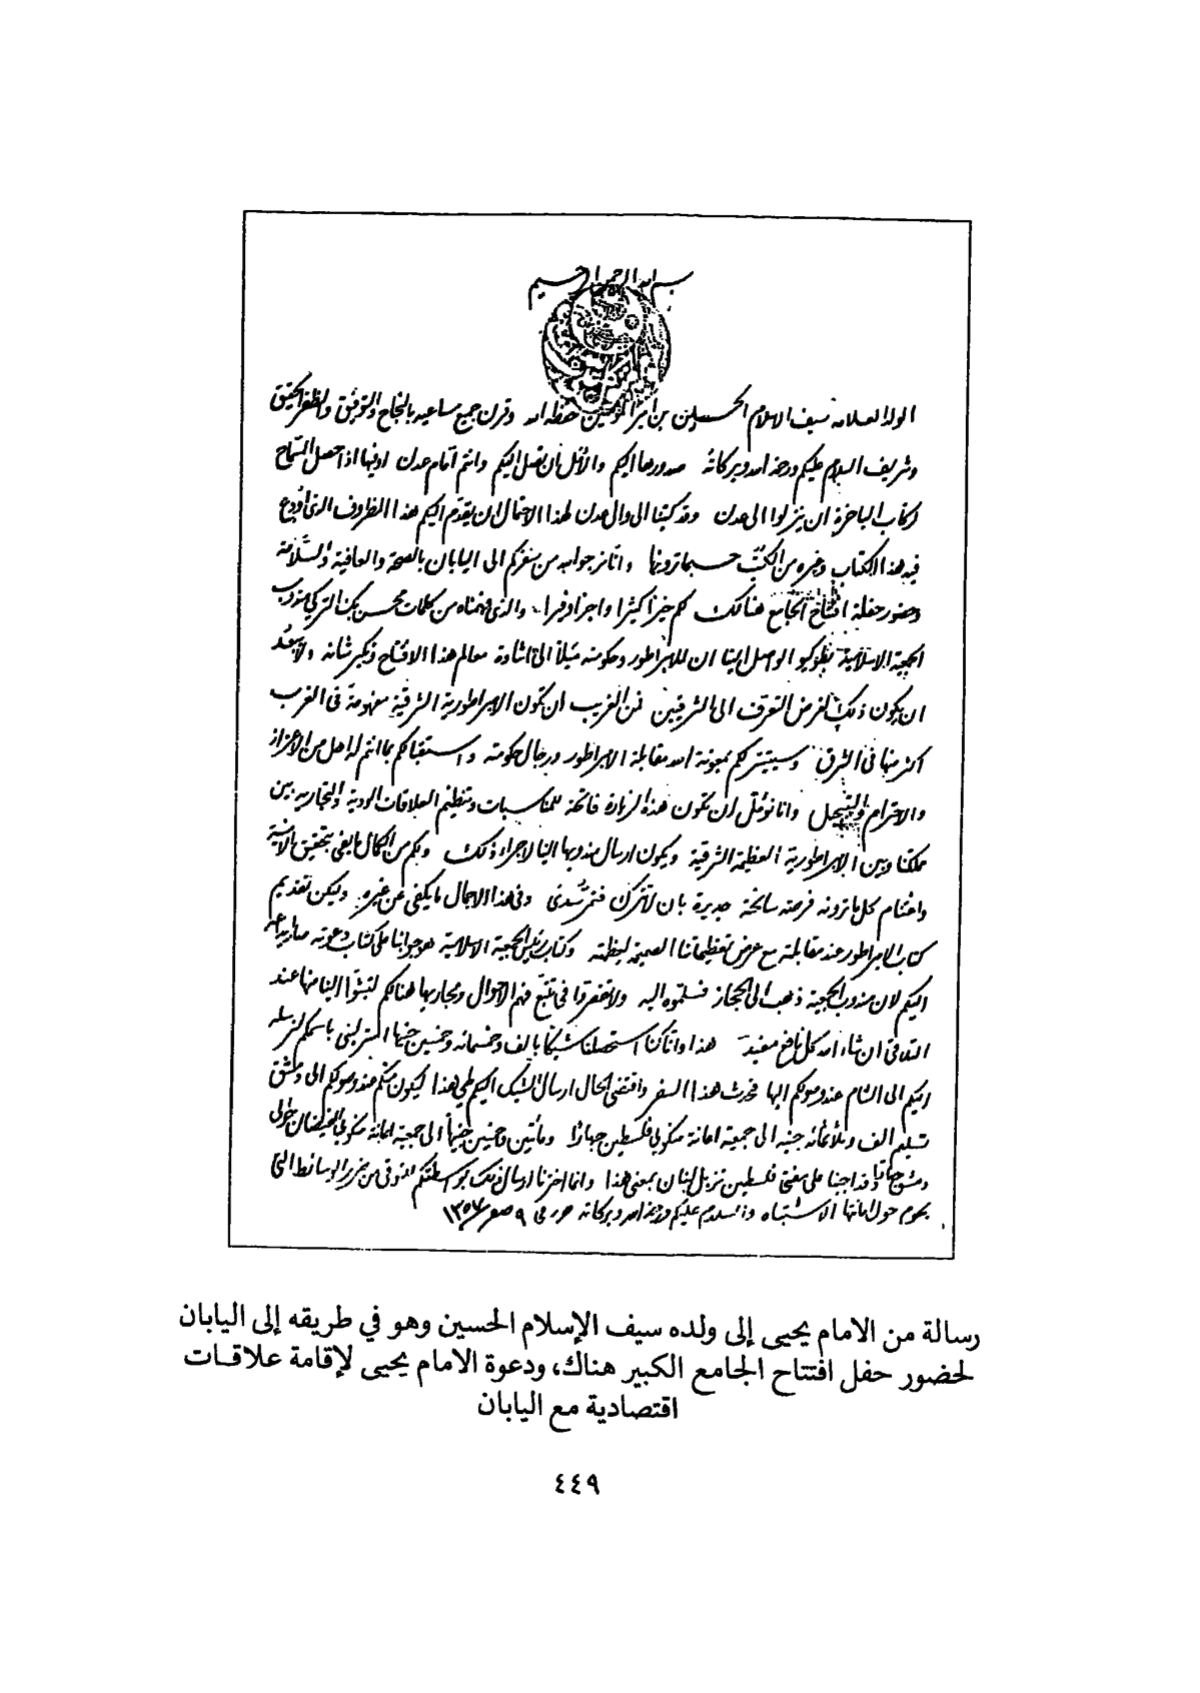 بسم الله الرحمن الرحيم
الولد العلامه سيف الاسلام الحسين بن امير المؤمنين حفظه الله وقرن جميع مساعيه بالنجاح والتوفيق والظفر الحقيق
وشريف السلام عليكم ورحمة الله وبركاته صدورها اليكم والأمل ان تصل اليكم وانتم امام عدن اوفيها اذا حصل السماح
لركاب الباخرة ان ينزلوا الى عدن وقد كتبنا الى والى عدن لهذا الاحتمال ان يقدم اليكم هذا الظروف الذى اودع
فيه هذا الكتاب وغيره من الكتب حسبما ترونها وانا نرجو الله من سفركم الى اليابان بالصحة والعافية والسلامة
وحضور حفلة افتتاح الجامع هنالك لكم خيرا كثيرا واجرا وفرا والذى فهمناه من كلمات محسن بك التركي مندوب
الجمعية الاسلامية بطوكيو الواصل الينا ان للامبراطور وحكومته ميلا الى اشادة معالم هذا الافتتاح وتكبير شانه ولا يبعد
ان يكون ذلك لغرض التعرف الى الشرقيين فمن الغريب ان تكون الامبراطورية الشرقية مفهومة فى الغرب
اكثر منها فى الشرق وسيتيسر لكم بمعونة الله مقابلة الامبراطور ورجال حكومته واستقبالكم بما انتم له اهل من الاعزاز
والاحترام والتبجيل وانا نؤمل ان تكون هذه الزيارة فاتحة للمناسبات وتنظيم العلاقات الودية والتجارية بين
مملكتنا وبين الامبراطورية العظيمة الشرقية ويكون ارسال مندوبها الينا لاجراء ذلك وبكم من الكمال ما يفى بتحقيق الامنية
واغتنام كل ما ترونه فرصة سانحة جديرة بان لا تترك فتمر سدى وفى هذا الاجمال ما يكفى عن غيره وليكن تقديم
كتاب الامبراطور عند مقابلته مع عرض تعظيماتنا الصميمة لعظمته وكتاب رئيس الجمعية الاسلامية هو جوابا على كتاب دعوته
اليكم لان مندوب الجمعية ذهب الى الحجاز فسلموه اليه ولا تقصروا فى تتبع فهم الاحوال ومجاريها هنالكم لتبثوا الينا منها عند
التلاقى ان شاء الله كل نافع مفيد هذا وانا كنا استحصلنا شيكا بالف وخمسمائة وخمسين جنيها استرلينى باسمكم لنرسله
اليكم الى الشام عند وصولكم اليها فحدث هذا السفر واقتضى الحال ارسال الشيك اليكم طى هذا ليكون منكم عند وصولكم الى دمشق
تسليم الف وثلاثمائة جنيه الى جمعية اعانة منكوبى فلسطين جهارا ومأتين وخمسين جنيها الى جمعية اعانة منكوبى الفيضان حوالى
دمشق وقد اجبنا على مفتى فلسطين نزيل لبنان بمعنى هذا وانما اخترنا ارسال ذلك بواسطتكم للتوقى من ضرر الوسائط التى
يحوم حول امانتها الاشتباه والسلام عليكم ورحمة الله وبركاته حرر فى ٩ صفر ١٣٥٧
رسالة من الامام يحيى إلى ولده سيف الإسلام الحسين وهو في طريقه إلى اليابان
لحضور حفل افتتاح الجامع الكبير هناك، ودعوة الامام يحيى لإقامة علاقات
اقتصادية مع اليابان
٤٤٩